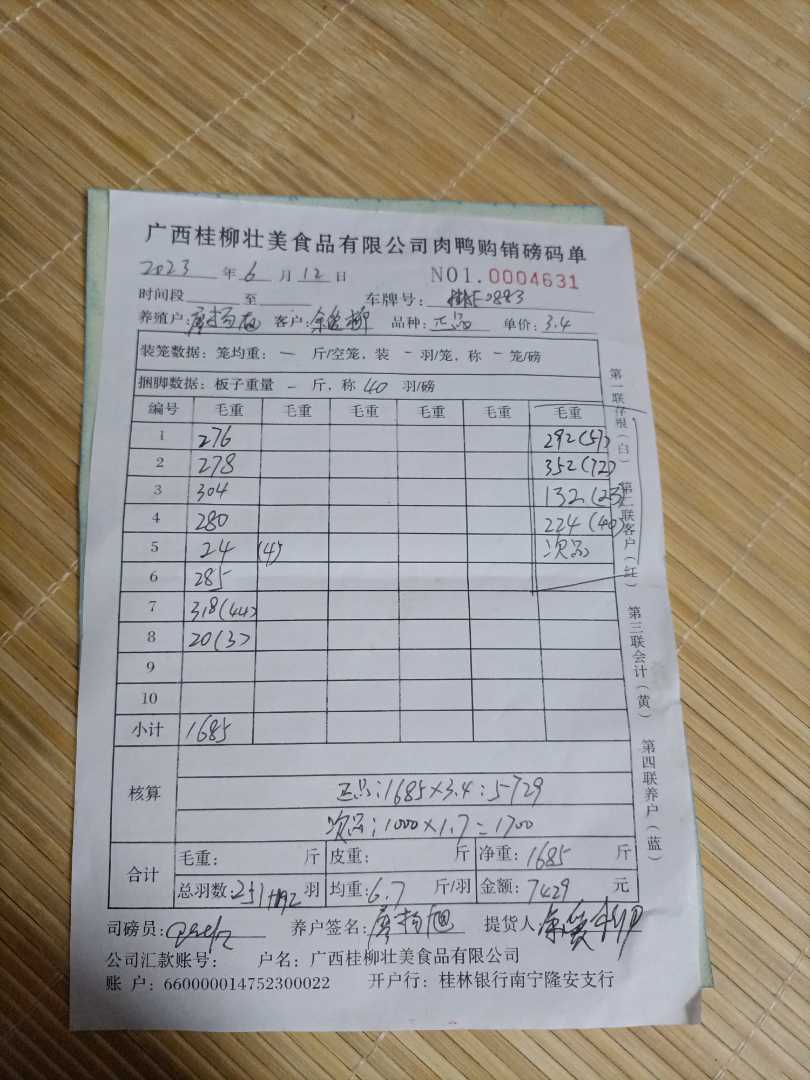 广西桂柳壮美食品有限公司肉鸭购销磅码单
2023 年 6 月 12 日 NO1.0004631
时间段 至 车牌号: 0883
养殖户: 廖扬旭 客户: 余 柳 品种: 正品 单价: 3.4
装笼数据: 笼均重: — 斤/空笼, 装 - 羽/笼, 称 - 笼/磅
捆脚数据: 板子重量 - 斤, 称 40 羽/磅
编号 毛重 毛重 毛重 毛重 毛重 毛重
1 276 292(57)
2 278 352(72)
3 304 132(23)
4 280 224(40)
5 24 (4) 次品
6 285
7 318(44)
8 20(3)
9
10
小计 1685
核算
正品:1685×3.4:5729
次品;1000×1.7=1700
合计 毛重: 斤 皮重: 斤 净重: 1685 斤
总羽数: 251+192 羽 均重: 6.7 斤/羽 金额: 7429 元
司磅员: 养户签名: 廖扬旭 提货人
公司汇款账号: 户名: 广西桂柳壮美食品有限公司
账 户: 660000014752300022 开户行: 桂林银行南宁隆安支行
第一联存根(白) 第二联客户(红) 第三联会计(黄) 第四联养户(蓝)